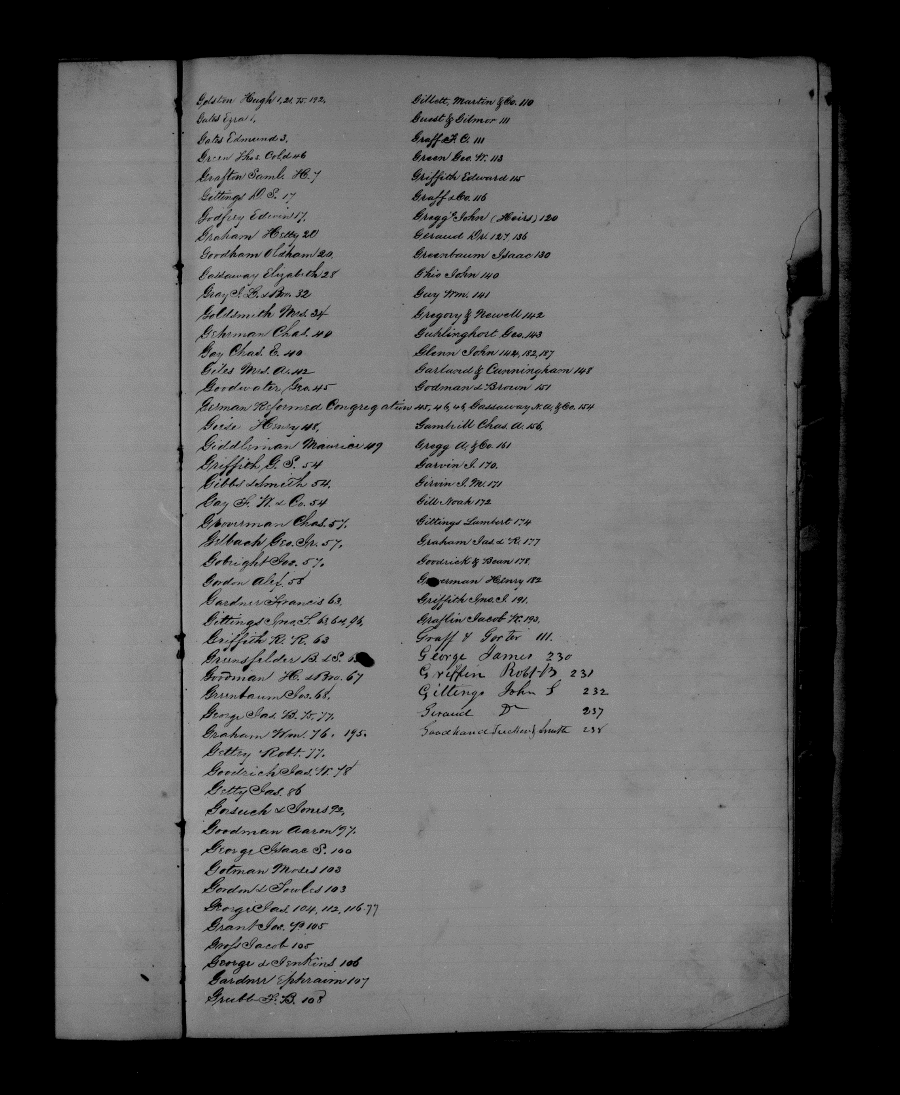 Gelston Hugh 1, 21, 75, 192,
Gates Ezra 1,
Gates Edmund 3,
Green Thos. Cold 46
Grafton Saml. H. 7
Gittings D. S. 17
Godfrey Edwin 17,
Graham Hetty 20
Goodham Oldham 20,
Gassaway Elizabeth 28
Gray & Bro. 32
Goldsmith Mrs. 34
Gehrman Chas. 40
Gay Chas. E. 40
Giles Mrs. A. 42
Goodwater, Geo. 45
German Reformed Congregation 45, 46, 48,
Geise Henry 48,
Giddleman Maurice 49
Griffith G. S. 54
Gibbs & Smith 54,
Gay F. W. & Co. 54
Groverman Chas. 57,
Gelbach Geo. Jr. 57,
Gobright Jos. 57,
Gordon Alex. 58
Gardner Francis 63,
Gittings Jno. S. 63, 64, 96
Griffith R. R. 63
Greensfelder B. & S.
Goodman H. & Bro. 67
Greenbaum Jos. 68,
George Jas. B. W. 77,
Graham Wm. 76, 195,
Gettey Robt. 77,
Goodrich Jas. W. 78
Getty Jas. 86
Gorsuch & Jones 92,
Goodman Aaron 97,
George Isaac S. 100
Gotman Moses 103
Gordon & Fowles 103
George Jas. 104, 112, 116, 77
Grant Jos. P. 105
Gross Jacob 105
George & Jenkins 106
Gardner Ephraim 107
Grubb F. B. 108
Gillett, Martin & Co. 110
Guest & Gilmor 111
Graff F. C. 111
Green Geo. W. 113
Griffith Edward 115
Graff & Co. 116
Gregg John (Heirs) 120
Geraud Dr. 127, 136
Greenbaum Isaac 130
Ghio John 140
Guy Wm. 141
Gregory & Newell 142
Guhlinghort Geo. 143
Glenn John 144, 182, 187
Garland & Cunningham 148
Godman & Brown 151
Gassaway N. A. & Co. 154
Gambrill Chas. A. 156,
Gregg A. & Co. 161
Garvin J. 170,
Girvin J. M. 171
Gill Noah 172
Gittings Lambert 174
Graham Jas. & R. 177
Goodrick & Bean 178,
Groverman Henry 182
Griffith Jno. J. 191,
Graflin Jacob W. 193,
Graff & Gorter 111.
George James 230
Griffin Robt B 231
Gittings John S 232
Geraud Dr 237
Goodhand & Smith 238